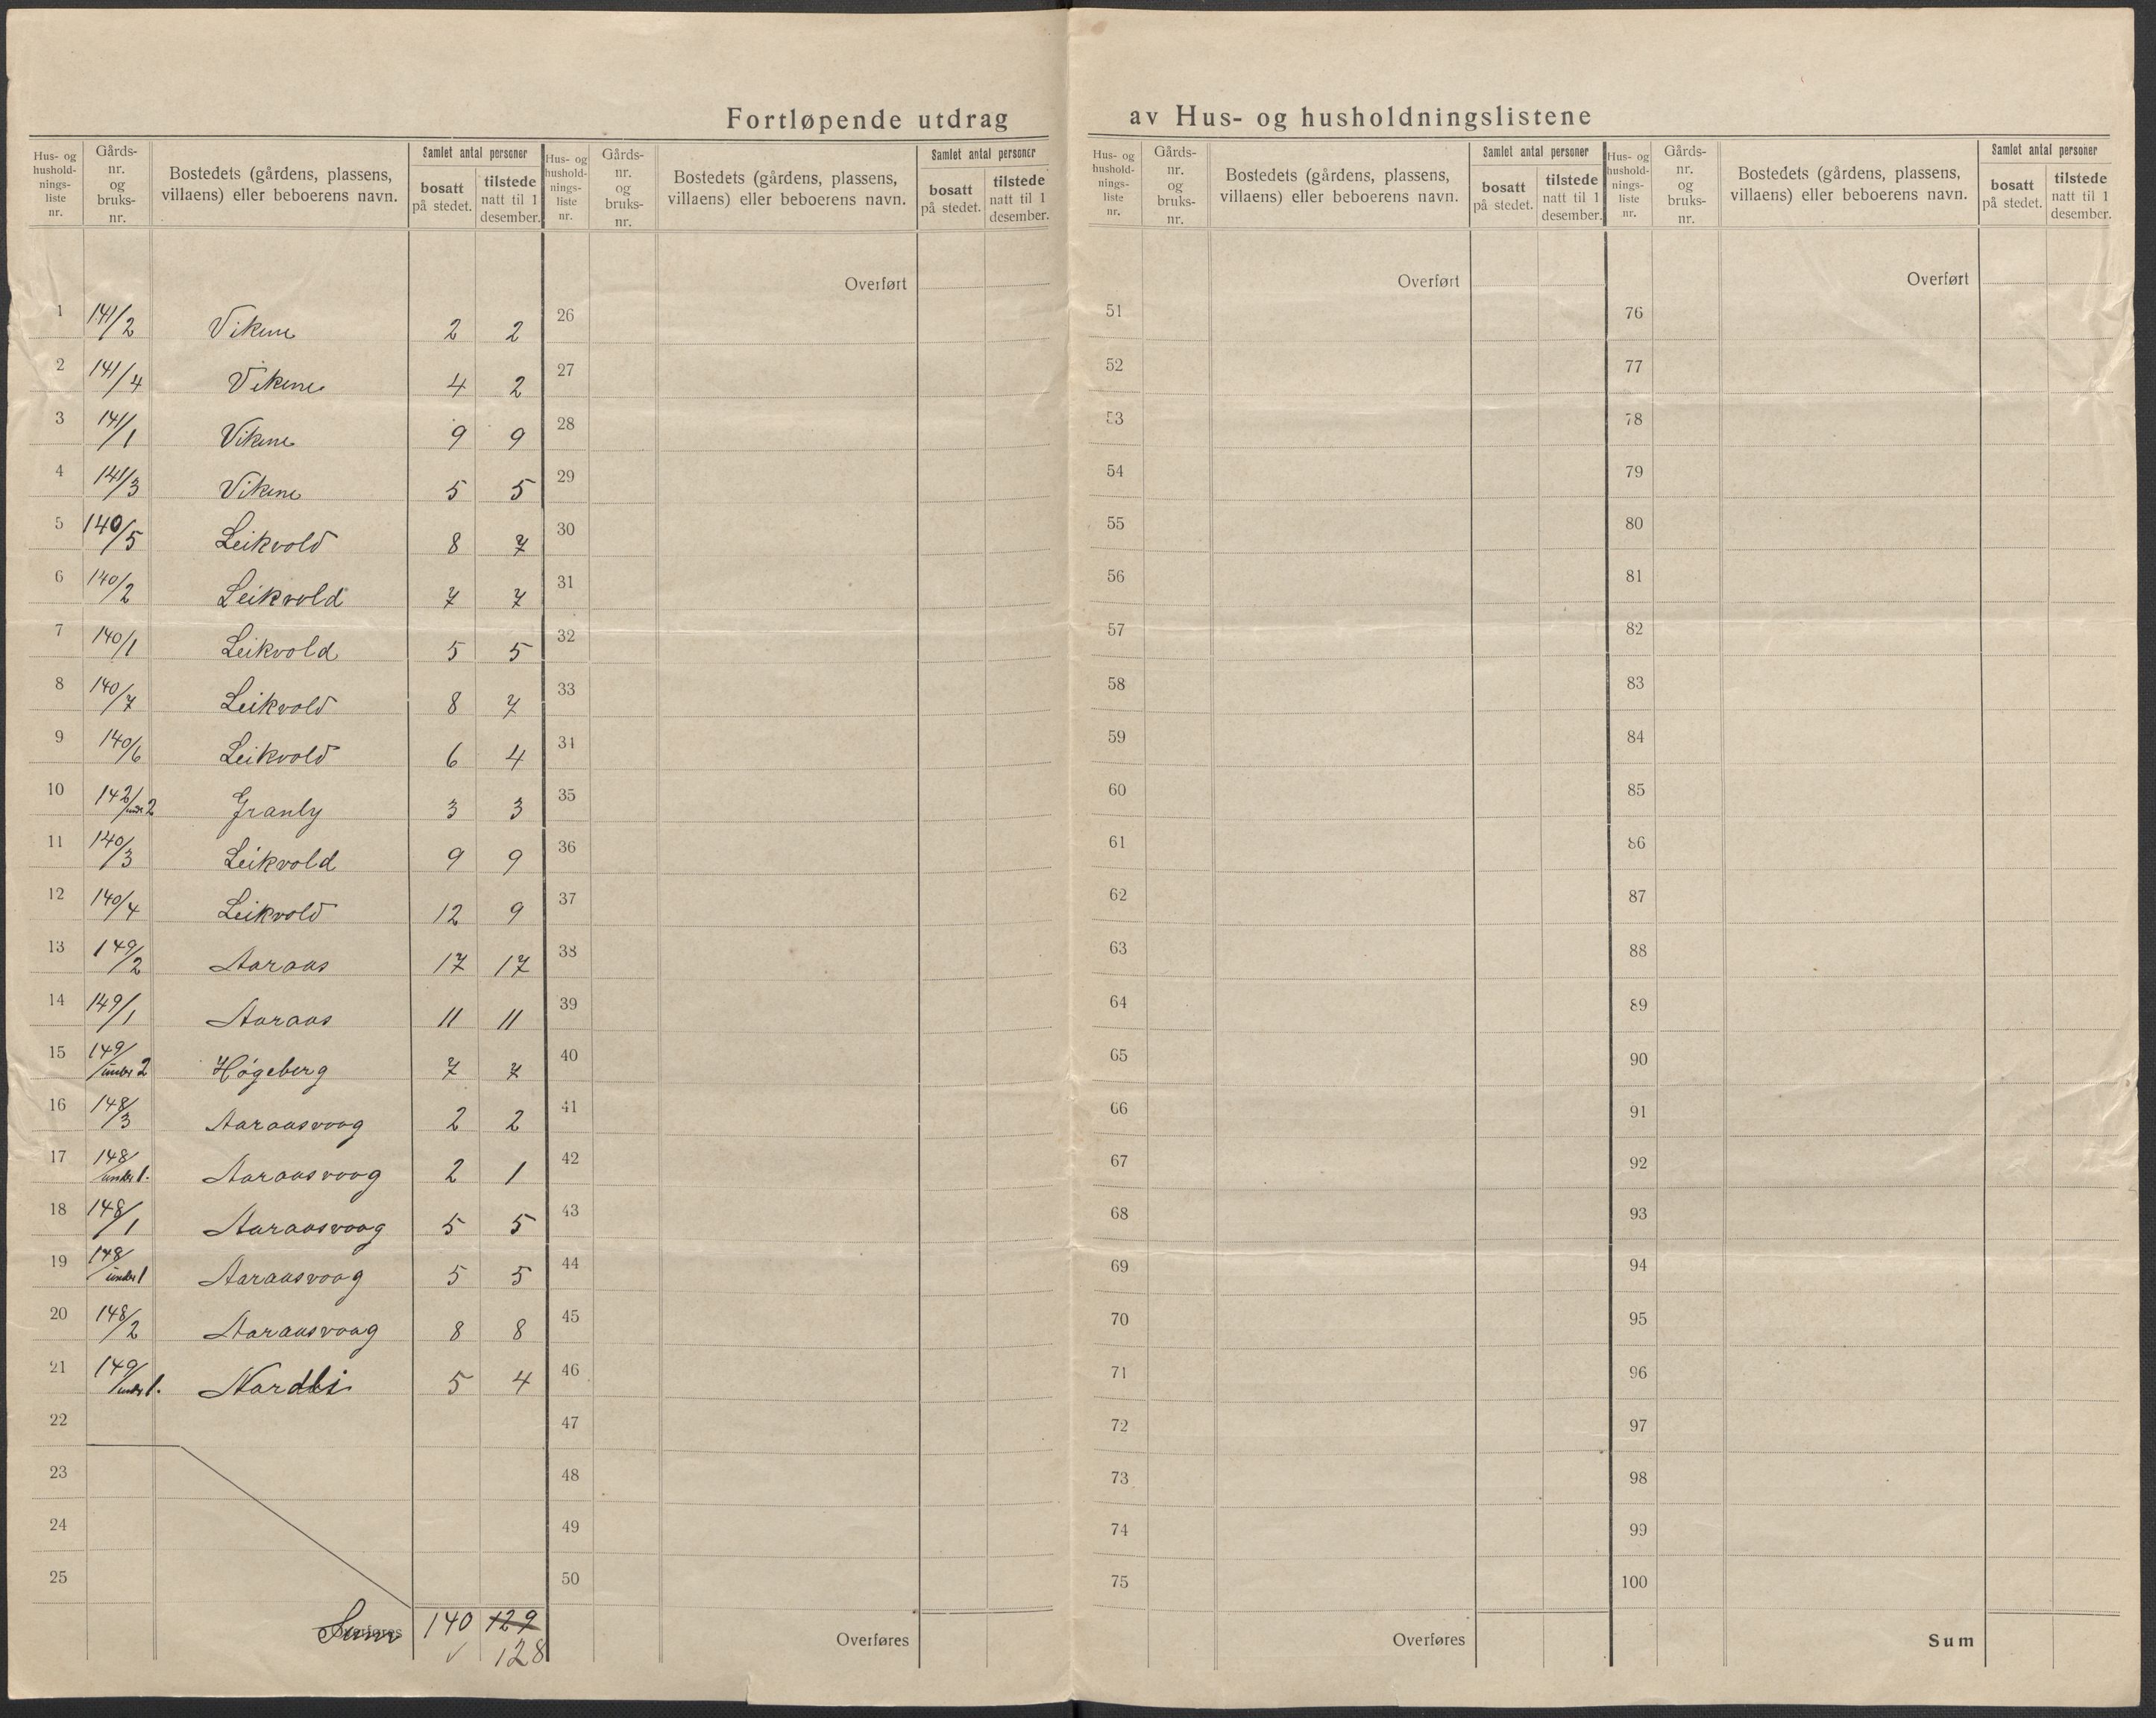 Fortløpende utdrag av Hus- og husholdningslistene
Hus- og husholdnings-liste nr. Gårds-nr. og bruks-nr. Bostedets (gårdens, plassens, villaens) eller beboerens navn. Samlet antal personer bosatt på stedet. tilstede natt til 1 desember.
1 141/2 Vikene 2 2
2 141/4 Vikene 4 2
3 141/1 Vikene 9 9
4 141/3 Vikene 5 5
5 140/5 Leikvold 8 7
6 140/2 Leikvold 7 7
7 140/1 Leikvold 5 5
8 140/7 Leikvold 8 7
9 140/6 Leikvold 6 4
10 142/under 2 Granly 3 3
11 140/3 Leikvold 9 9
12 140/4 Leikvold 12 9
13 149/2 Aaraas 17 17
14 149/1 Aaraas 11 11
15 149/under 2 Høgeberg 7 7
16 148/3 Aaraasvaag 2 2
17 148/under 1. Aaraasvaag 2 1
18 148/1 Aaraasvaag 5 5
19 148/under 1 Aaraasvaag 5 5
20 148/2 Aaraasvaag 8 8
21 149/under 1. Nordli 5 4
22
23
24
25
Sum 140 129
128
Hus- og husholdnings-liste nr. Gårds-nr. og bruks-nr. Bostedets (gårdens, plassens, villaens) eller beboerens navn. Samlet antal personer bosatt på stedet. tilstede natt til 1 desember.
Overført
26
27
28
29
30
31
32
33
34
35
36
37
38
39
40
41
42
43
44
45
46
47
48
49
50
Overføres
Hus- og husholdnings-liste nr. Gårds-nr. og bruks-nr. Bostedets (gårdens, plassens, villaens) eller beboerens navn. Samlet antal personer bosatt på stedet. tilstede natt til 1 desember.
Overført
51
52
53
54
55
56
57
58
59
60
61
62
63
64
65
66
67
68
69
70
71
72
73
74
75
Overføres
Hus- og husholdnings-liste nr. Gårds-nr. og bruks-nr. Bostedets (gårdens, plassens, villaens) eller beboerens navn. Samlet antal personer bosatt på stedet. tilstede natt til 1 desember.
Overført
76
77
78
79
80
81
82
83
84
85
86
87
88
89
90
91
92
93
94
95
96
97
98
99
100
Sum